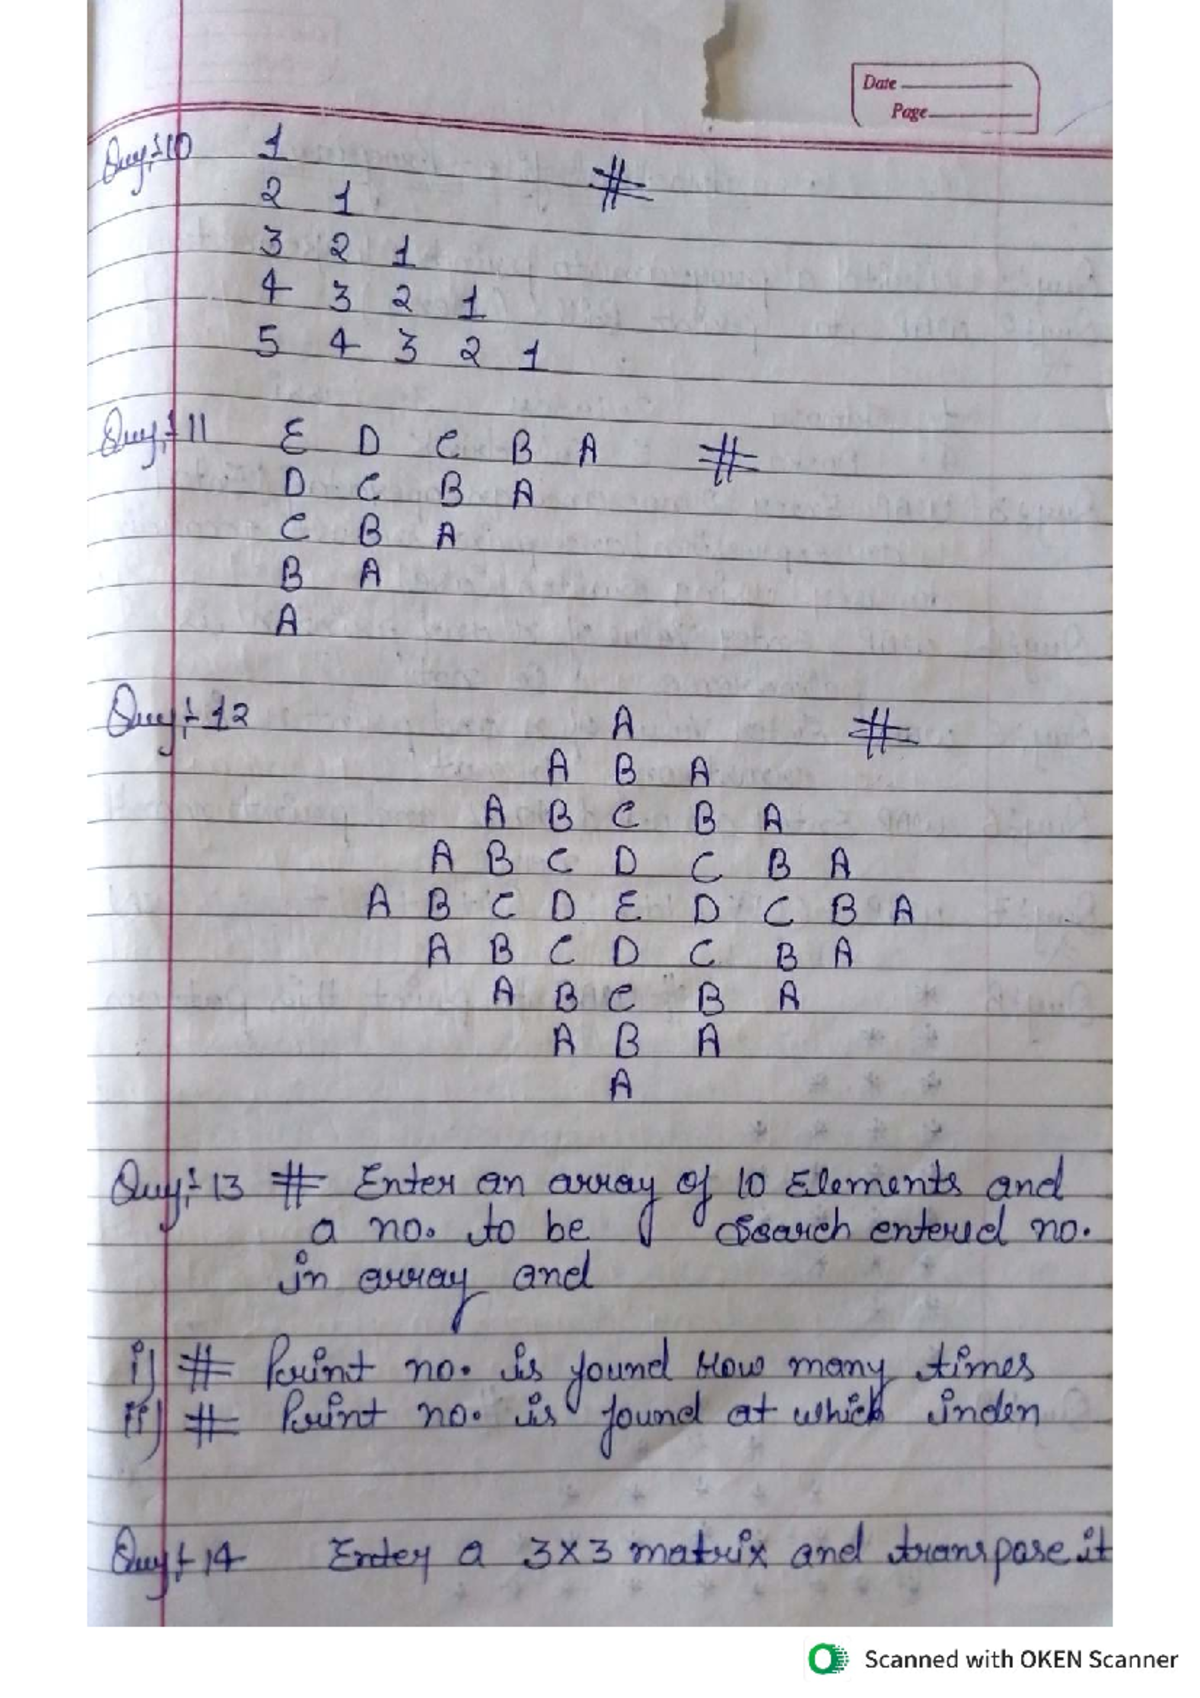 Date
Page
Ques:-10 1 #
2 1
3 2 1
4 3 2 1
5 4 3 2 1
Ques:-11 E D C B A #
D C B A
C B A
B A
A
Ques:-12 A #
A B A
A B C B A
A B C D C B A
A B C D E D C B A
A B C D C B A
A B C B A
A B A
A
Ques:-13 # Enter an array of 10 Elements and
a no. to be search entered no.
in array and
i) # Print no. is found How many times
ii) # Print no. is found at which index
Ques:-14 Enter a 3x3 matrix and transpose it
Scanned with OKEN Scanner